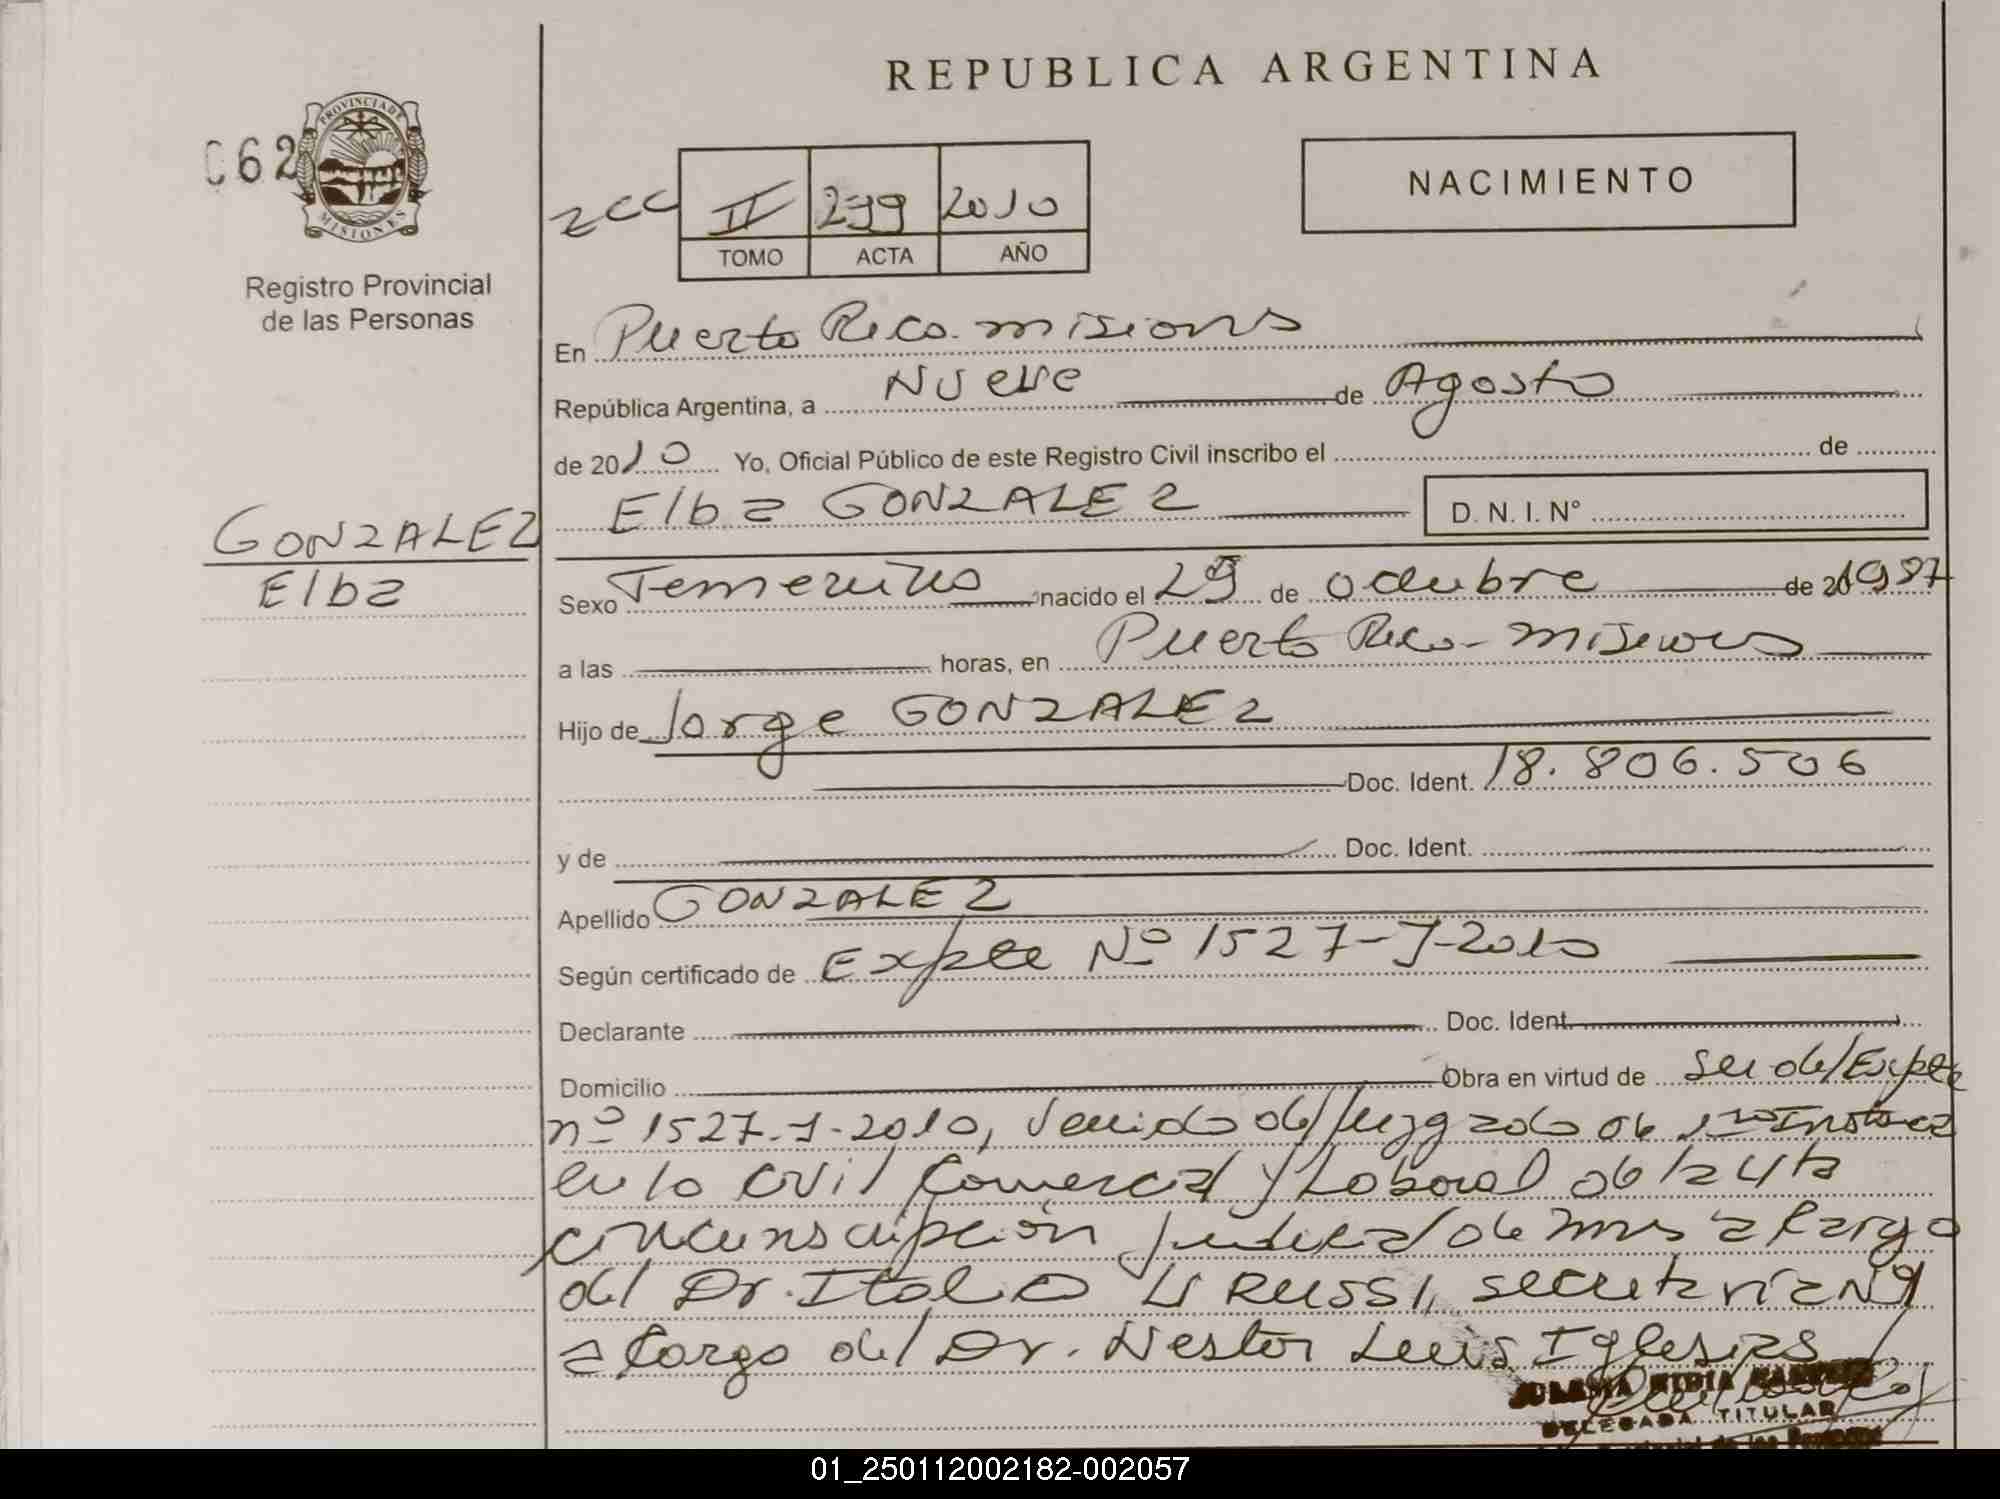 REPUBLICA ARGENTINA
062
PROVINCIA DE
MISIONES
Registro Provincial
de las Personas
II 299 2010
TOMO ACTA AÑO
NACIMIENTO
En Puerto Rico. misiones
República Argentina, a Nueve de Agosto
de 2010 Yo, Oficial Público de este Registro Civil inscribo el de
Elba GONZALEZ D. N. I. N°
GONZALEZ
Elba
Sexo Femenino nacido el 29 de octubre de 201987
a las horas, en Puerto Rico - misiones
Hijo de Jorge GONZALEZ
Doc. Ident. 18.806.506
y de Doc. Ident.
Apellido GONZALEZ
Según certificado de Expte Nº 1527-J-2010
Declarante Doc. Ident.
Domicilio Obra en virtud de ser del Expte
nº 1527-J-2010, venido del Juzgado de 1ra Instancia
en lo Civil Comercial y Laboral de la 4ta
circunscripción Judicial de Mnes a Cargo
del Dr. Italo U RUSSI, secretaria Nº1
a Cargo del Dr. Nestor Luis Iglesias
DELEGADA TITULAR
de las Personas
01_250112002182-002057